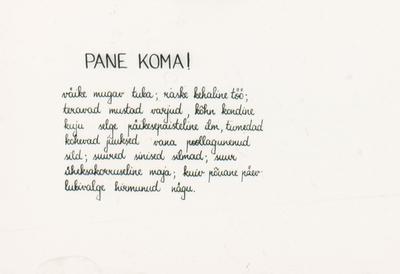 PANE KOMA!
väike mugav tuba; raske kehaline töö;
teravad mustad varjud, kõhn kondine
kuju selge päikesepaisteline ilm, tumedad
kohevad juuksed vana poollagunenud
sild; suured sinised silmad; suur
üheksakorruseline maja; kuiv põuane päev
lubivalge hirmunud nägu.